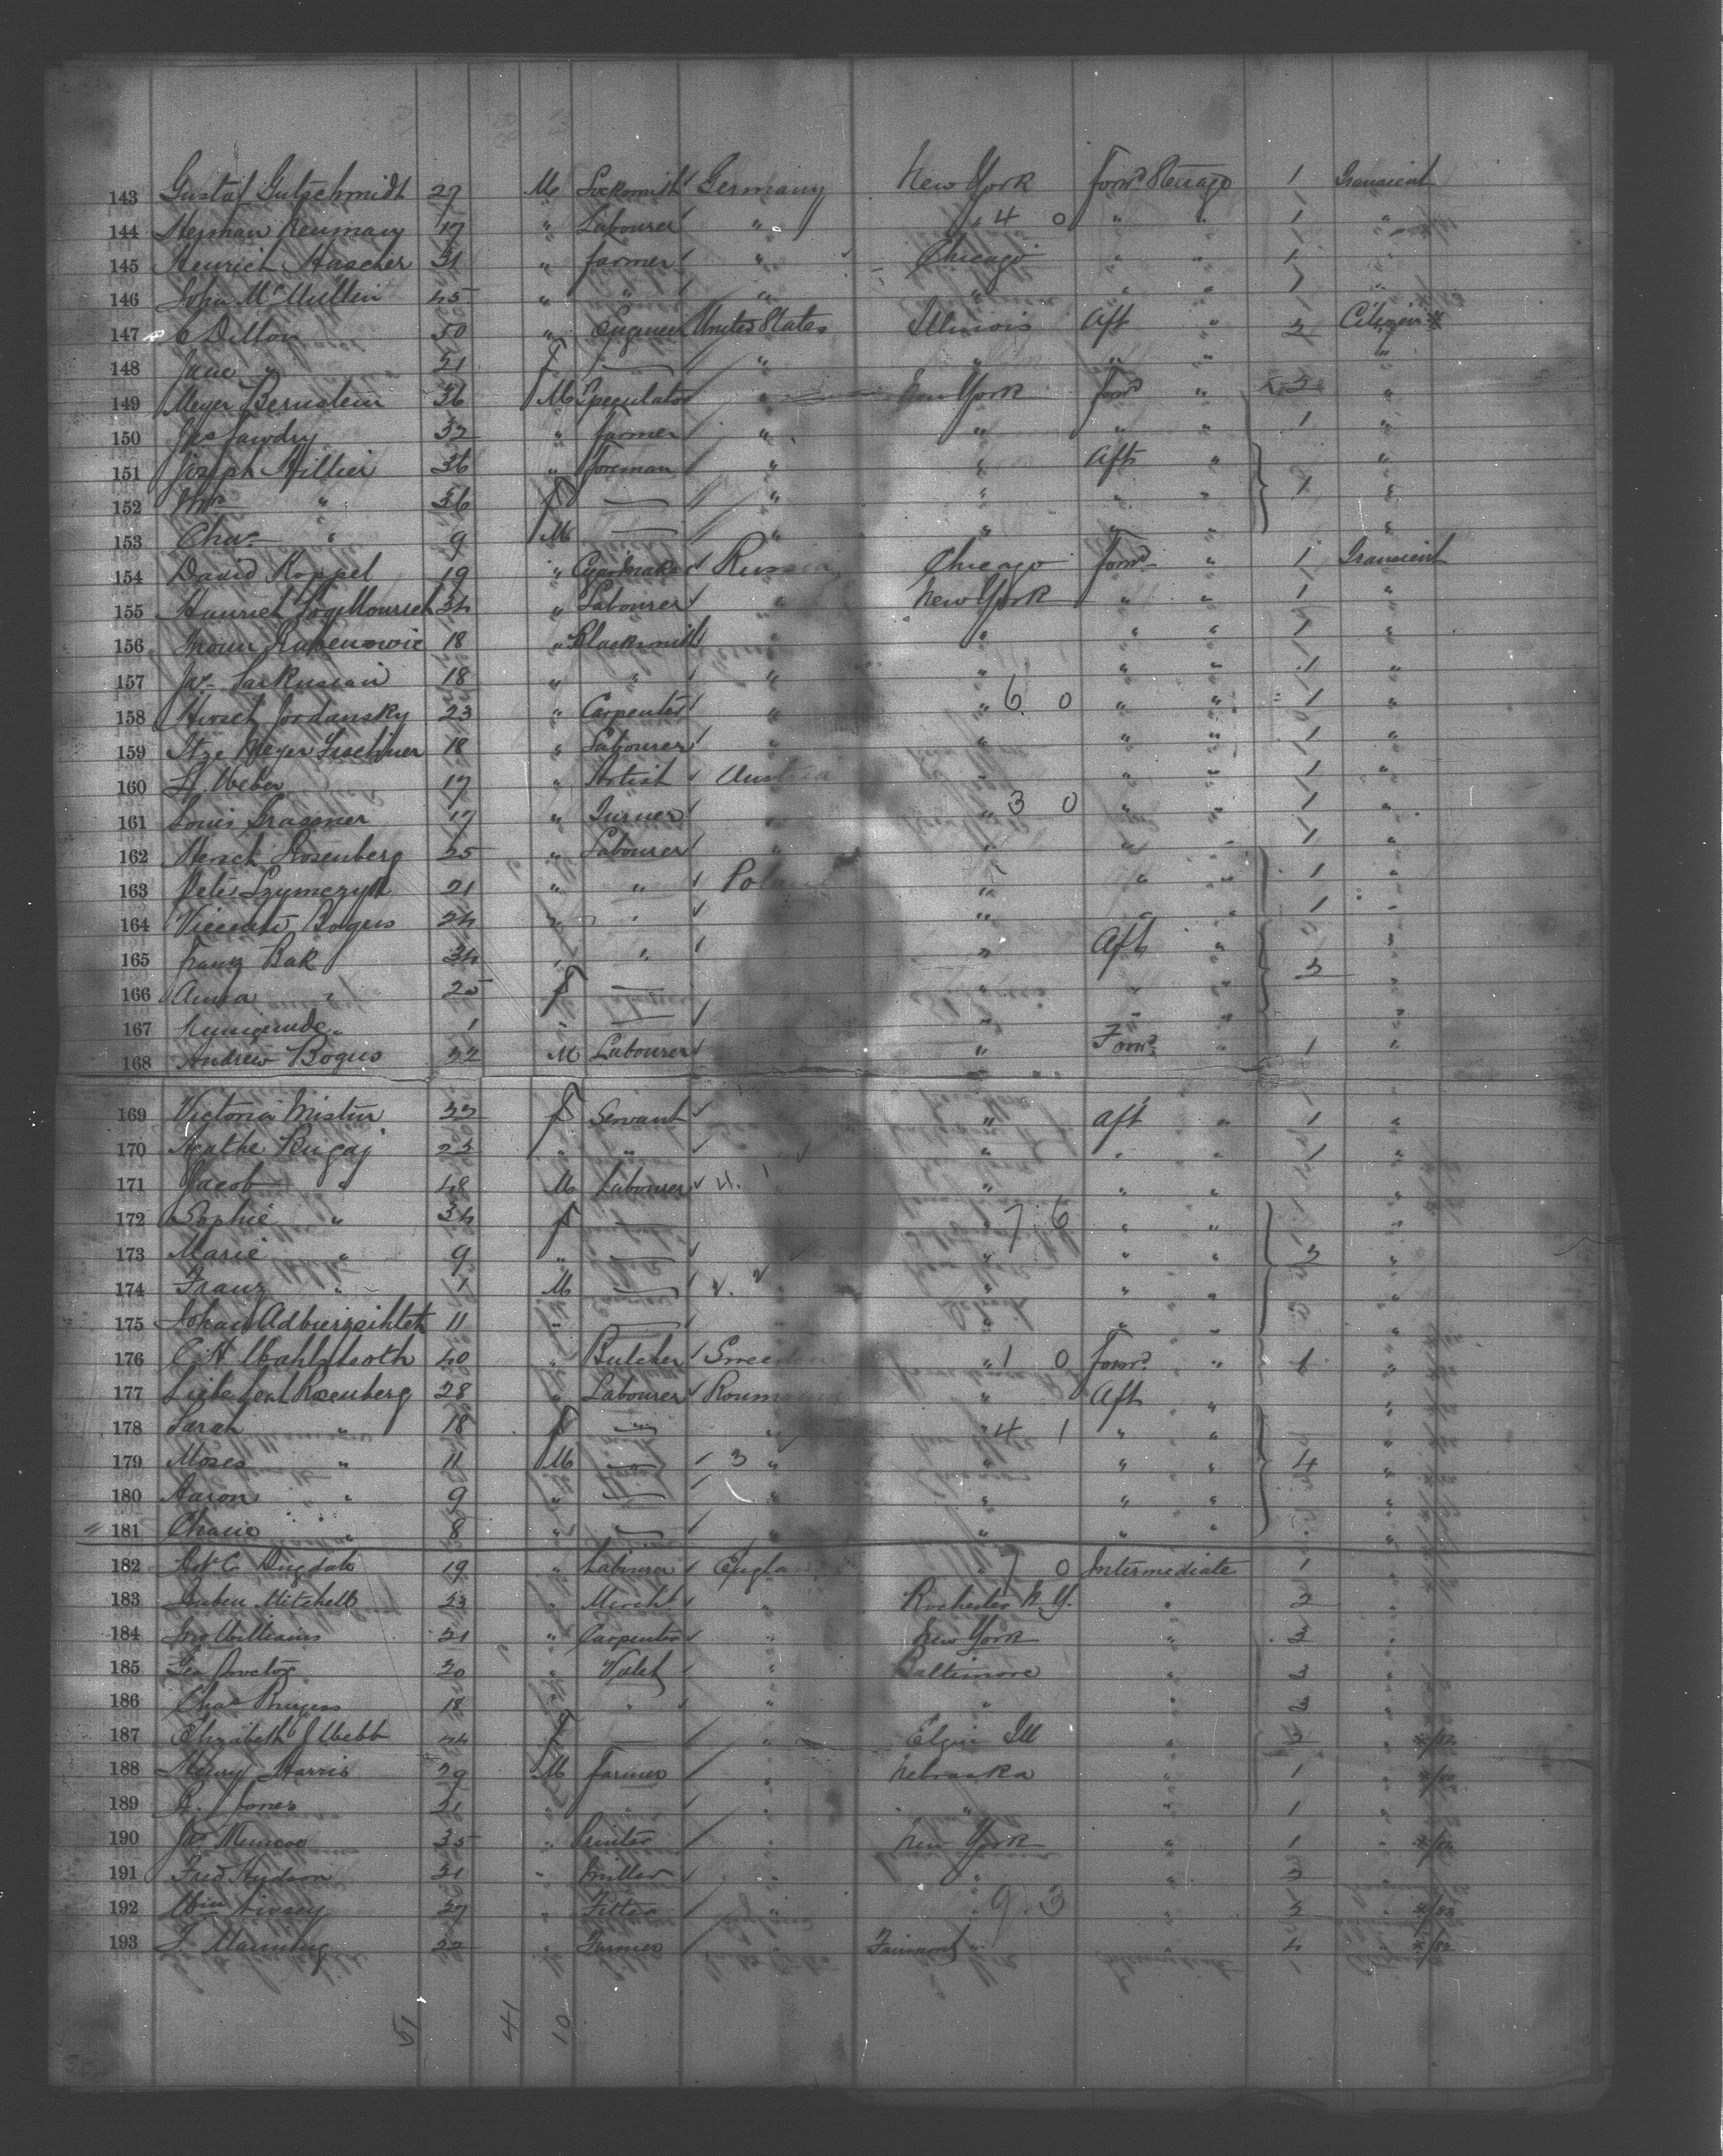 143 Gustaf Gutschmidt 27 M Locksmith Germany New York Forwd Sterage 1 Transient
144 Herman Neumann 17 " Labourer " " 4 0 " " 1 "
145 Heinrich Hascher 31 " farmer " Chicago " " 1 "
146 John McMullin 45 " " " " " " 1 "
147 C Dillon 50 " Engineer United States Illinois Aft " 2 Citizen
148 Jane " 51 f — " " " " "
149 Meyer Bernstein 36 M Speculator " New York forwd " 2 "
150 Jas Lawdry 32 " farmer " " " " 1 "
151 Joseph Hillier 36 " foreman " " Aft " "
152 Mrs " 36 f — " " " " 1 "
153 Chas " 9 M — " " " " "
154 David Koppel 19 " Cigar Maker Russia Chicago forwd " 1 Transient
155 Heinrich 34 " Labourer " New York " " 1 "
156 Rabenowic 18 " Blacksmith " " " " 1 "
157 Js. 18 " " " " " " 1 "
158 Hirsch Jordansky 23 " Carpenter " " 6 0 " " 1 "
159 Itze Meyer 18 " Labourer " " " " 1 "
160 H. Weber 17 " Artist Austria " " " 1 "
161 Louis 17 " Turner " " 3 0 " " 1 "
162 Hersch Rosenberg 25 " Labourer " " " " 1 "
163 Pete Szymczyk 21 " " Poland " " " 1 "
164 Bogus 24 " " " " " 1 "
165 Franz Bak 34 " " " Aft " "
166 Anna " 25 f — " " " 2 "
167 " 1 " — " " " "
168 Andrew Bogus 22 M Labourer " Forwd " 1 "
169 Victoria 22 f Servant " Aft " 1 "
170 Agathe 23 " " " " " 1 "
171 Jacob " 48 M Labourer " " " "
172 Sophie " 34 f — " 7 6 " " "
173 Marie " 9 " — " " " 2 "
174 Franz " 1 M — " " " "
175 Johan 11 " — " " " "
176 C H 40 " Butcher Sweeden " 1 0 Forwd " 1 "
177 Rosenberg 28 " Labourer Roumania " Aft " "
178 Sarah " 18 f — " " 4 1 " " "
179 Moses " 11 M — 3 " " " " 4 "
180 Aaron " 9 " — " " " " "
181 " 8 " — " " " " "
182 C Dugdale 19 " Labourer England " 7 0 Intermediate 1 "
183 Mitchell 23 " Mercht " Rochester N.Y. " 2 "
184 Jno Williams 21 " Carpenter " New York " 3 "
185 Geo Proctor 20 " Valet " Baltimore " 3 "
186 Chas Burgess 18 " " " " " 3 "
187 Elizabeth J Webb 44 f — " Elgin Ill " 2 "
188 Henry Harris 29 M Farmer " Nebraska " 1 "
189 H. Jones 21 " " " " " 1 "
190 Jas 35 " Printer " New York " 1 "
191 Fred Hudson 21 " Miller " " " 2 "
192 Wm Livsey 27 " Fitter " " 9 3 " 2 "
193 J Manning 22 " Farmer " Fairmont " " 4 "
51 41 10